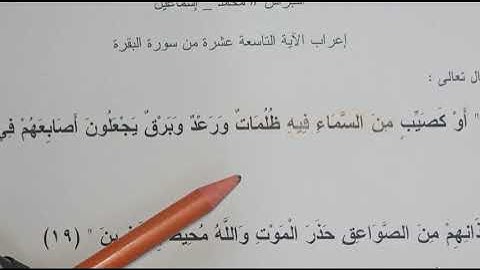 محمد _ إسماعيل
إعراب الآية التاسعة عشرة من سورة البقرة
ال تعالى :
" أَوْ كَصَيِّبٍ مِنَ السَّمَاءِ فِيهِ ظُلُمَاتٌ وَرَعْدٌ وَبَرْقٌ يَجْعَلُونَ أَصَابِعَهُمْ فِي
ذَانِهِمْ مِنَ الصَّوَاعِقِ حَذَرَ الْمَوْتِ وَاللَّهُ " (١٩)